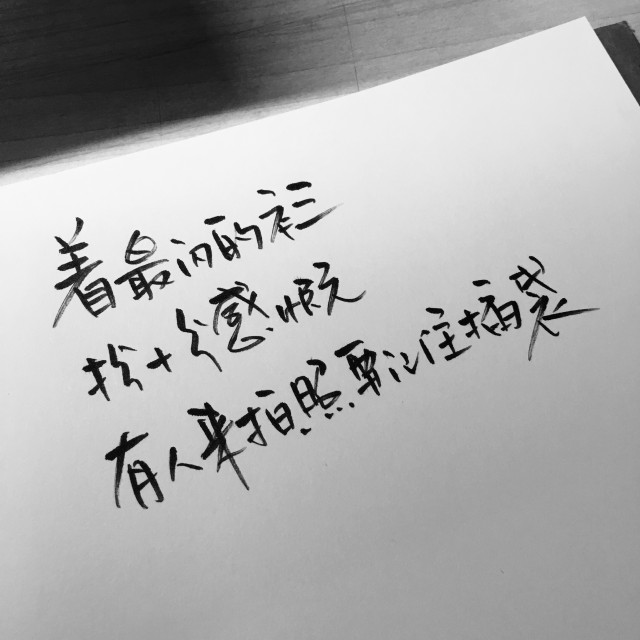 着最闪的衫
扮十分感慨
有人来拍照要记住插袋